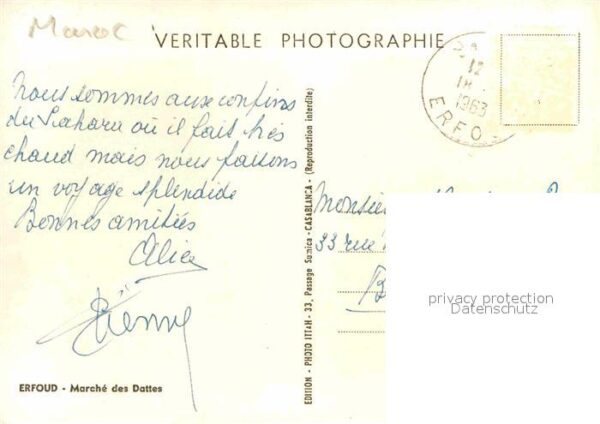 Maroc
VERITABLE PHOTOGRAPHIE
12
1963
ERFO
Nous sommes aux confins
du Sahara où il fait très
chaud mais nous faisons
un voyage splendide
Bonnes amitiés
Alice
Etienne
ERFOUD - Marché des Dattes
EDITION - PHOTO ITTAH - 33, Passage Sumica - CASABLANCA - (Reproduction interdite)
Monsieu
33 rue
privacy protection
Datenschutz